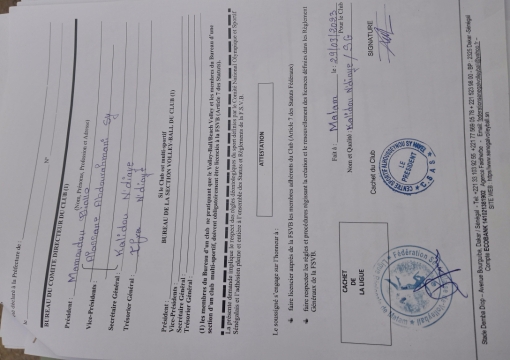 déclaré à la Préfecture de :
N°
N°
BUREAU DU COMITE DIRECTEUR DU CLUB (1)
Président : Mamadou Diallo
(Nom, Prénoms, Profession et Adresse)
Vice-Présidents : Alassane Abdourahmani Sy
Secrétaire Général : Kalidou N'diaye
Trésorier Général : N'diaye
Si le Club est multi-sportif
BUREAU DE LA SECTION VOLLEY-BALL DU CLUB (1)
Président :
Vice-Présidents :
Secrétaire Général :
Trésorier Général :
(1) les membres du Bureau d'un club ne pratiquant que le Volley-Ball/Beach Volley et les membres du Bureau d'une
section d'un club multi-sportif, doivent obligatoirement être licenciés à la FSVB (Article 7 des Statuts).
La présente demande implique le respect des règles déontologiques de sport définies par le Comité National Olympique et Sportif
Sénégalais et l'adhésion pleine et entière à l'ensemble des Statuts et Règlements de la F.S.V.B.
ATTESTATION
Le soussigné s'engage sur l'honneur à :
faire licencier auprès de la FSVB les membres adhérents du Club (Article 7 des Statuts Fédéraux)
faire respecter les règles et procédures régissant la création et le renouvellement des licences définies dans les Règlement
Généraux de la FSVB.
Fait à : Matam le : 29/03/2023
Pour le Club
Nom et Qualité : Kalidou Ndiaye / SG
CACHET
DE
LA LIGUE
Cachet du Club
SIGNATURE
LE
PRESIDENT
C.B.A.S
Stade Demba Diop – Avenue Bourguiba, Dakar / Sénégal - Tel +221 33 103 92 55 +221 77 569 05 78 + 221 523 98 50 - BP : 2323 Dakar -Sénégal
Compte ECOBANK 141021381902 Agence Faidherbe - Email :
SITE WEB : https://www.senegalvolleyball.sn